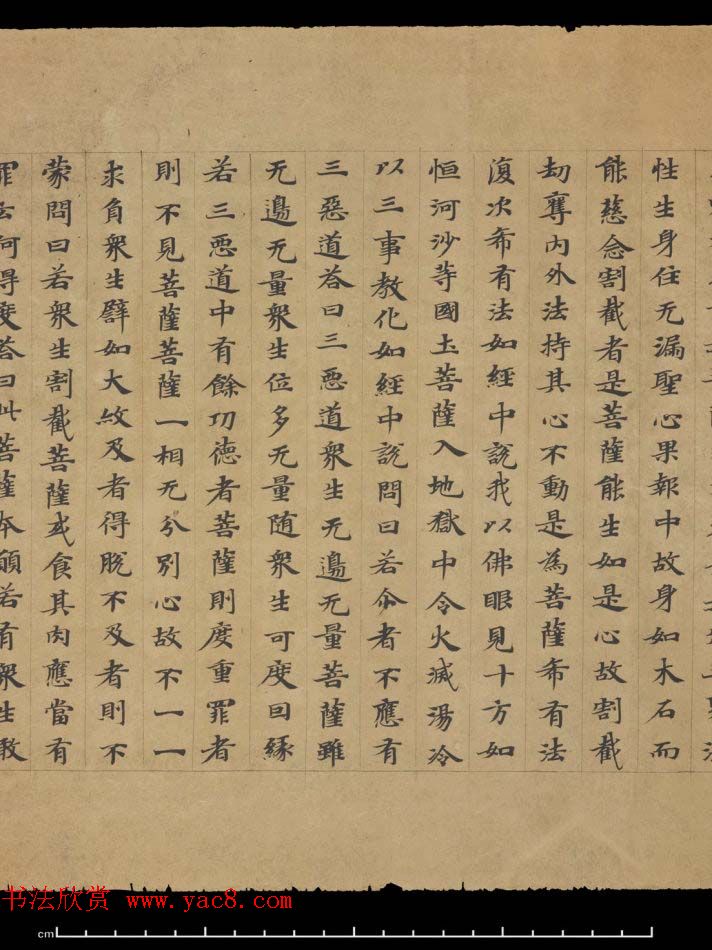 性生身住无漏聖心果報中故身如木石而
能慈念割截者是菩薩能生如是心故割截
刧奪内外法持其心不動是為菩薩希有法
復次希有法如經中說我以佛眼見十方如
恒河沙等國土菩薩入地獄中令火滅湯冷
以三事教化如經中說問曰若尒者不應有
三惡道荅曰三惡道衆生无邊无量菩薩雖
无邊无量衆生位多无量随衆生可度囙緣
若三惡道中有餘功德者菩薩則度重罪者
則不見菩薩菩薩一相无分別心故不一一
求負衆生譬如大赦及者得脫不及者則不
蒙問曰若衆生割截菩薩或食其肉應當有
罪云何得度荅曰此菩薩本願若有衆生敢
书法欣赏 www.yac8.com
cm